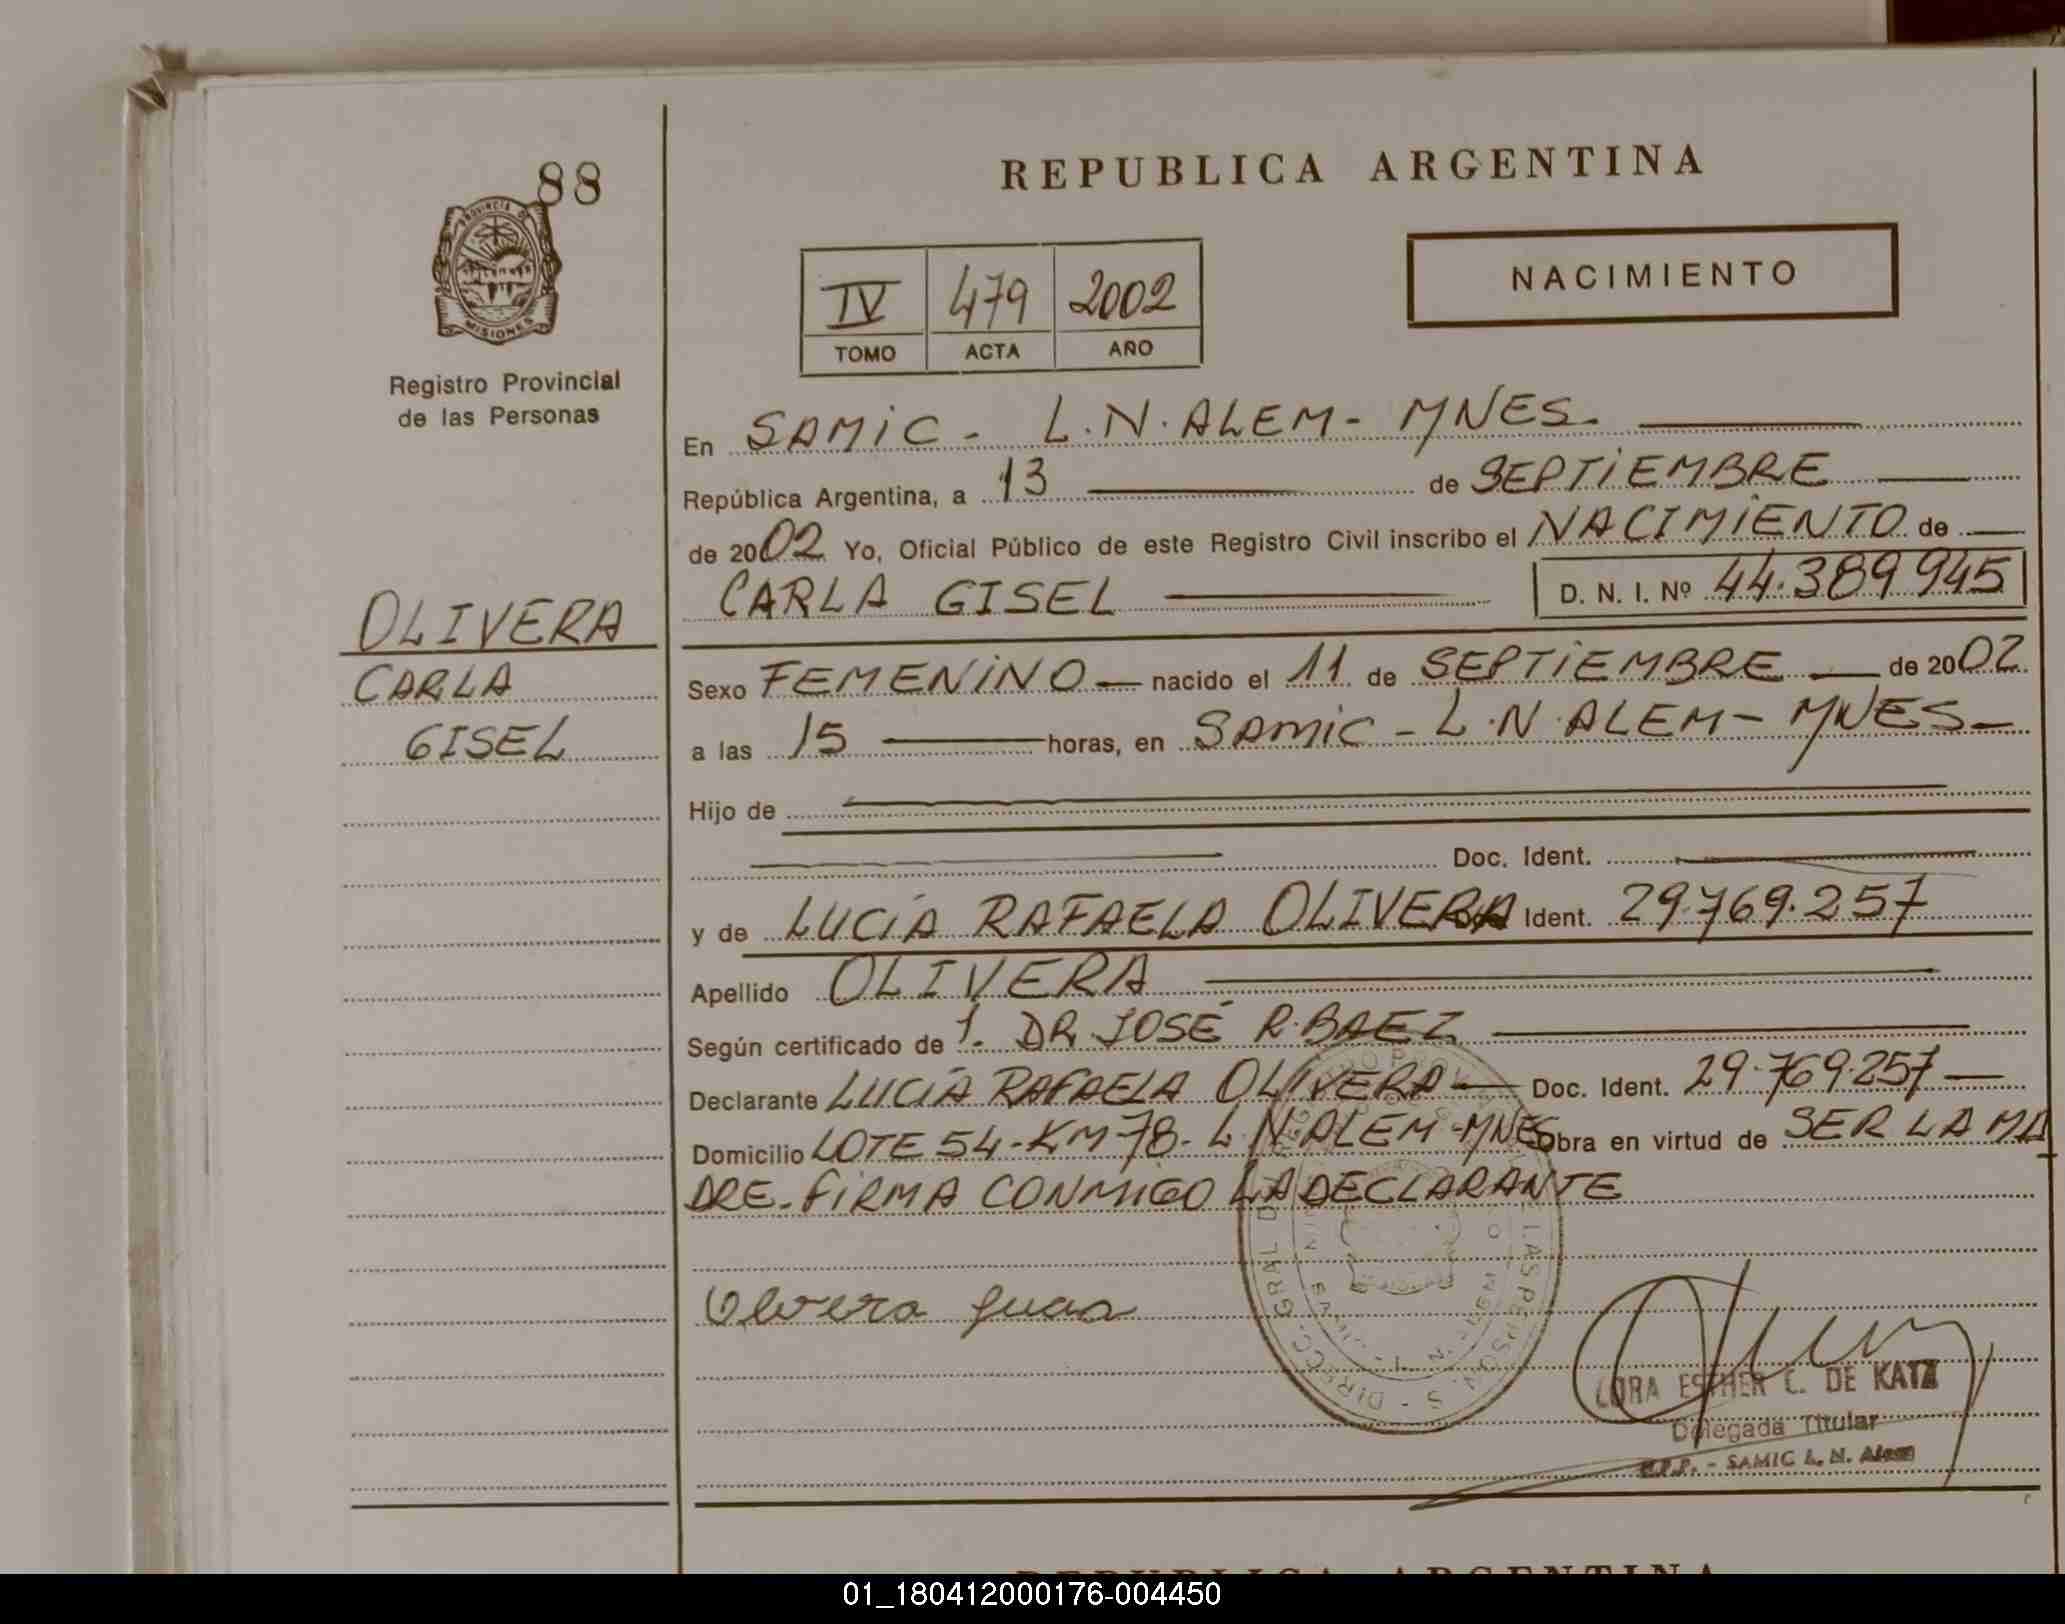 88
PROVINCIA DE
MISIONES
Registro Provincial
de las Personas
OLIVERA
CARLA
GISEL
REPUBLICA ARGENTINA
IV 479 2002
TOMO ACTA AÑO
NACIMIENTO
En SAMIC - L.N.ALEM - MNES.
República Argentina, a 13 de SEPTIEMBRE
de 2002 Yo, Oficial Público de este Registro Civil inscribo el NACIMIENTO de
CARLA GISEL D. N. I. Nº 44.389945
Sexo FEMENINO nacido el 11 de SEPTIEMBRE de 2002
a las 15 horas, en SAMIC - L.N.ALEM - MNES
Hijo de
Doc. Ident.
y de LUCÍA RAFAELA OLIVERA Doc. Ident. 29.769.257
Apellido OLIVERA
Según certificado de 1. DR. JOSÉ R. BAEZ
Declarante LUCÍA RAFAELA OLIVERA Doc. Ident. 29.769.257
Domicilio LOTE 54 - KM 78 - L.N.ALEM - MNES Obra en virtud de SER LA MA
DRE. FIRMA CONMIGO LA DECLARANTE
Olivera
ESTHER C. DE KATZ
Delegada Titular
R.P.P. - SAMIC L. N. Alem
REPUBLICA ARGENTINA
01_180412000176-004450